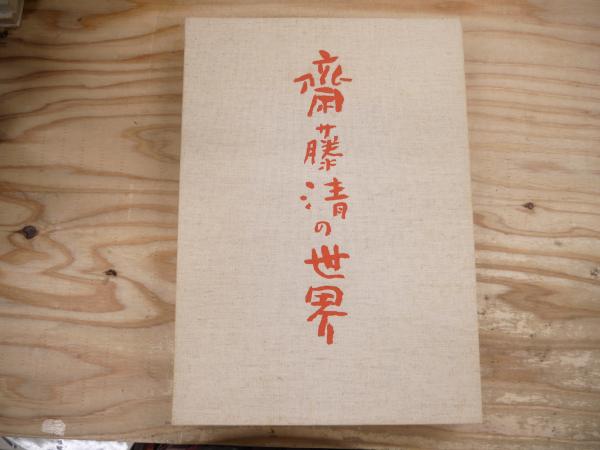 齋藤清の世界